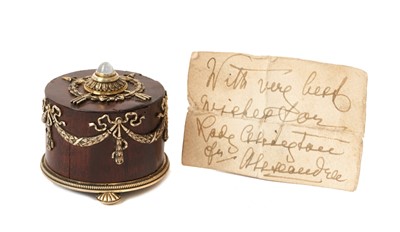 With very best
wishes for
Lady Alington
fr. Alexandra